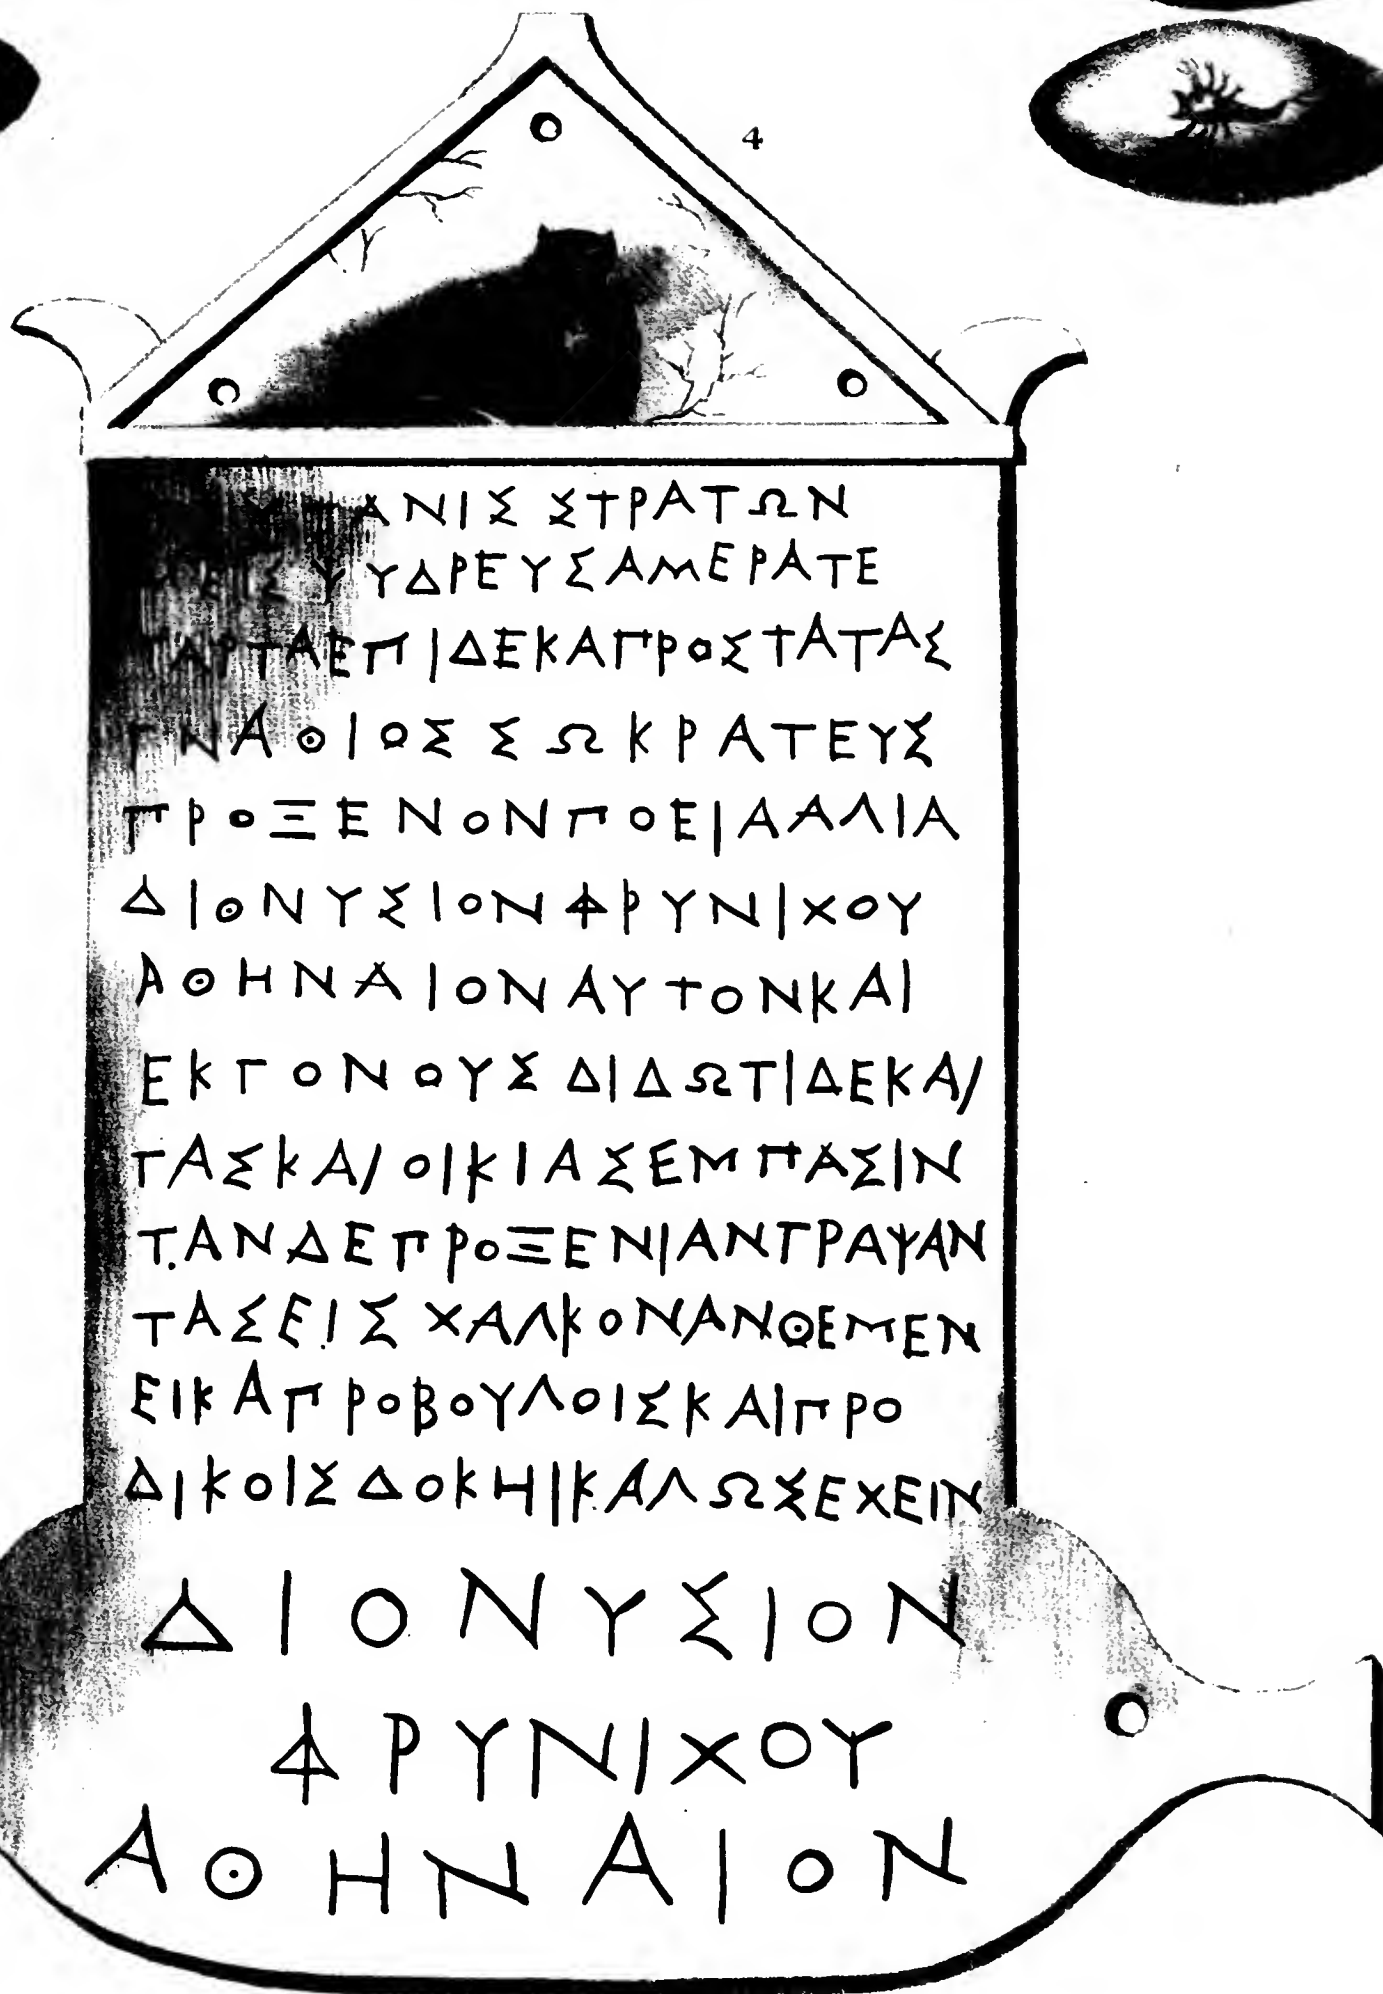 4
ΠΡΥΤΑΝΙΣ ΣΤΡΑΤΩΝ
ΜΕΙΣΨΥΔΡΕΥΣΑΜΕΡΑΤΕ
ΤΑΡΤΑΕΠΙΔΕΚΑΠΡΟΣΤΑΤΑΣ
ΓΝΑΘΙΟΣΣΩΚΡΑΤΕΥΣ
ΠΡΟΞΕΝΟΝΠΟΕΙΑΑΛΙΑ
ΔΙΟΝΥΣΙΟΝΦΡΥΝΙΧΟΥ
ΑΘΗΝΑΙΟΝΑΥΤΟΝΚΑΙ
ΕΚΓΟΝΟΥΣΔΙΔΩΤΙΔΕΚΑΙ
ΓΑΣΚΑΙΟΙΚΙΑΣΕΜΠΑΣΙΝ
ΤΑΝΔΕΠΡΟΞΕΝΙΑΝΓΡΑΨΑΝ
ΤΑΣΕΙΣΧΑΛΚΟΝΑΝΘΕΜΕΝ
ΕΙΚΑΠΡΟΒΟΥΛΟΙΣΚΑΙΠΡΟ
ΔΙΚΟΙΣΔΟΚΗΙΚΑΛΩΣΕΧΕΙΝ
ΔΙΟΝΥΣΙΟΝ
ΦΡΥΝΙΧΟΥ
ΑΘΗΝΑΙΟΝ